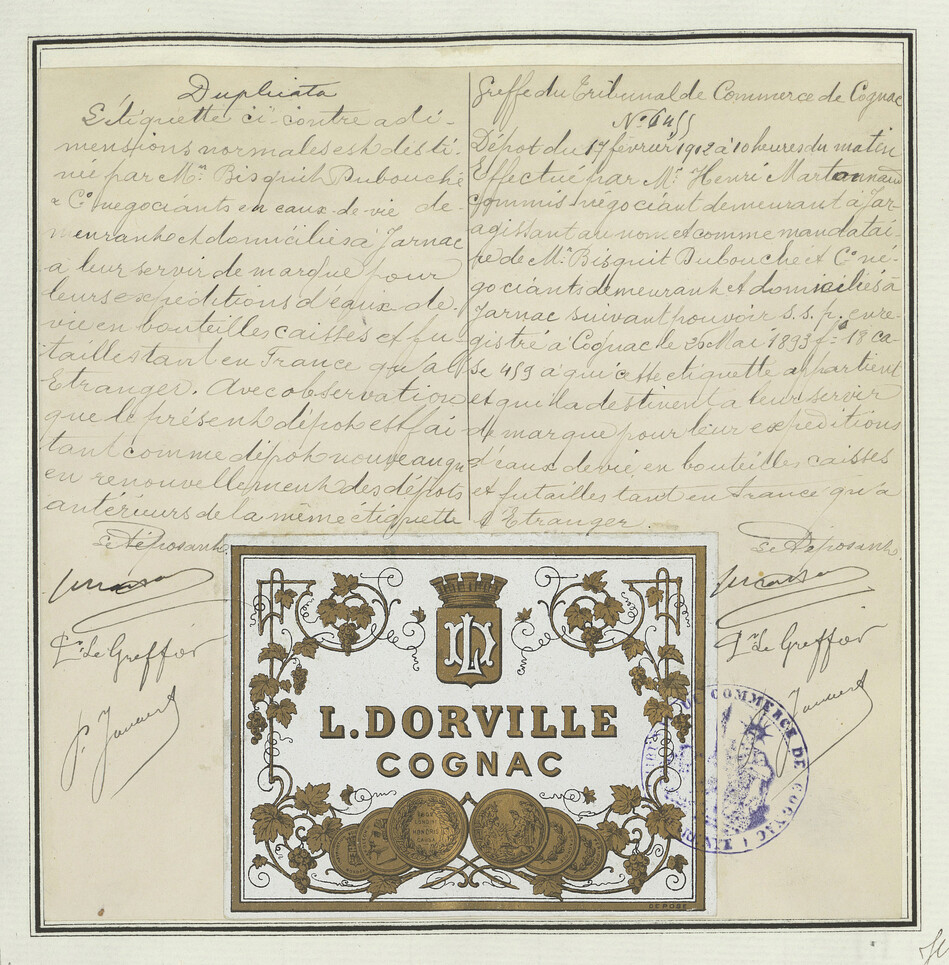 Duplicata
L'étiquette ci-contre a di-
mensions normales est desti-
née par Mrs Bisquit Dubouché
& Co négociants en eaux-de-vie de-
meurant et domiciliés à Jarnac
à leur servir de marque pour
leurs expéditions d'eaux de
vie en bouteilles caisses et fu-
tailles tant en France qu'à l'
Etranger. Avec observation
que le présent dépôt est fai-
tant comme dépôt nouveau qu'
en renouvellement des dépôts
antérieurs de la même étiquette
Le Déposant
Pr le Greffier
Greffe du Tribunal de Commerce de Cognac
No 6455
Dépôt du 17 février 1912 à 10 heures du matin
Effectué par Mr Henri
commis-négociant demeurant à Jar-
agissant au nom et comme mandatai-
re de Mrs Bisquit Dubouché et Co né-
gociants demeurant et domiciliés à
Jarnac suivant pouvoir s.s.p. enre-
gistré à Cognac le 26 Mai 1893 fo 18 ca-
se 459 à qui cette étiquette appartient
et qui la destinent à leur servir
de marque pour leur expéditions
d'eaux de vie en bouteilles caisses
et futailles tant en France qu'à
l'Etranger.
Le Déposant
Pr le Greffier
L. DORVILLE
COGNAC
DEROSE
COMMERCE DE COGNAC